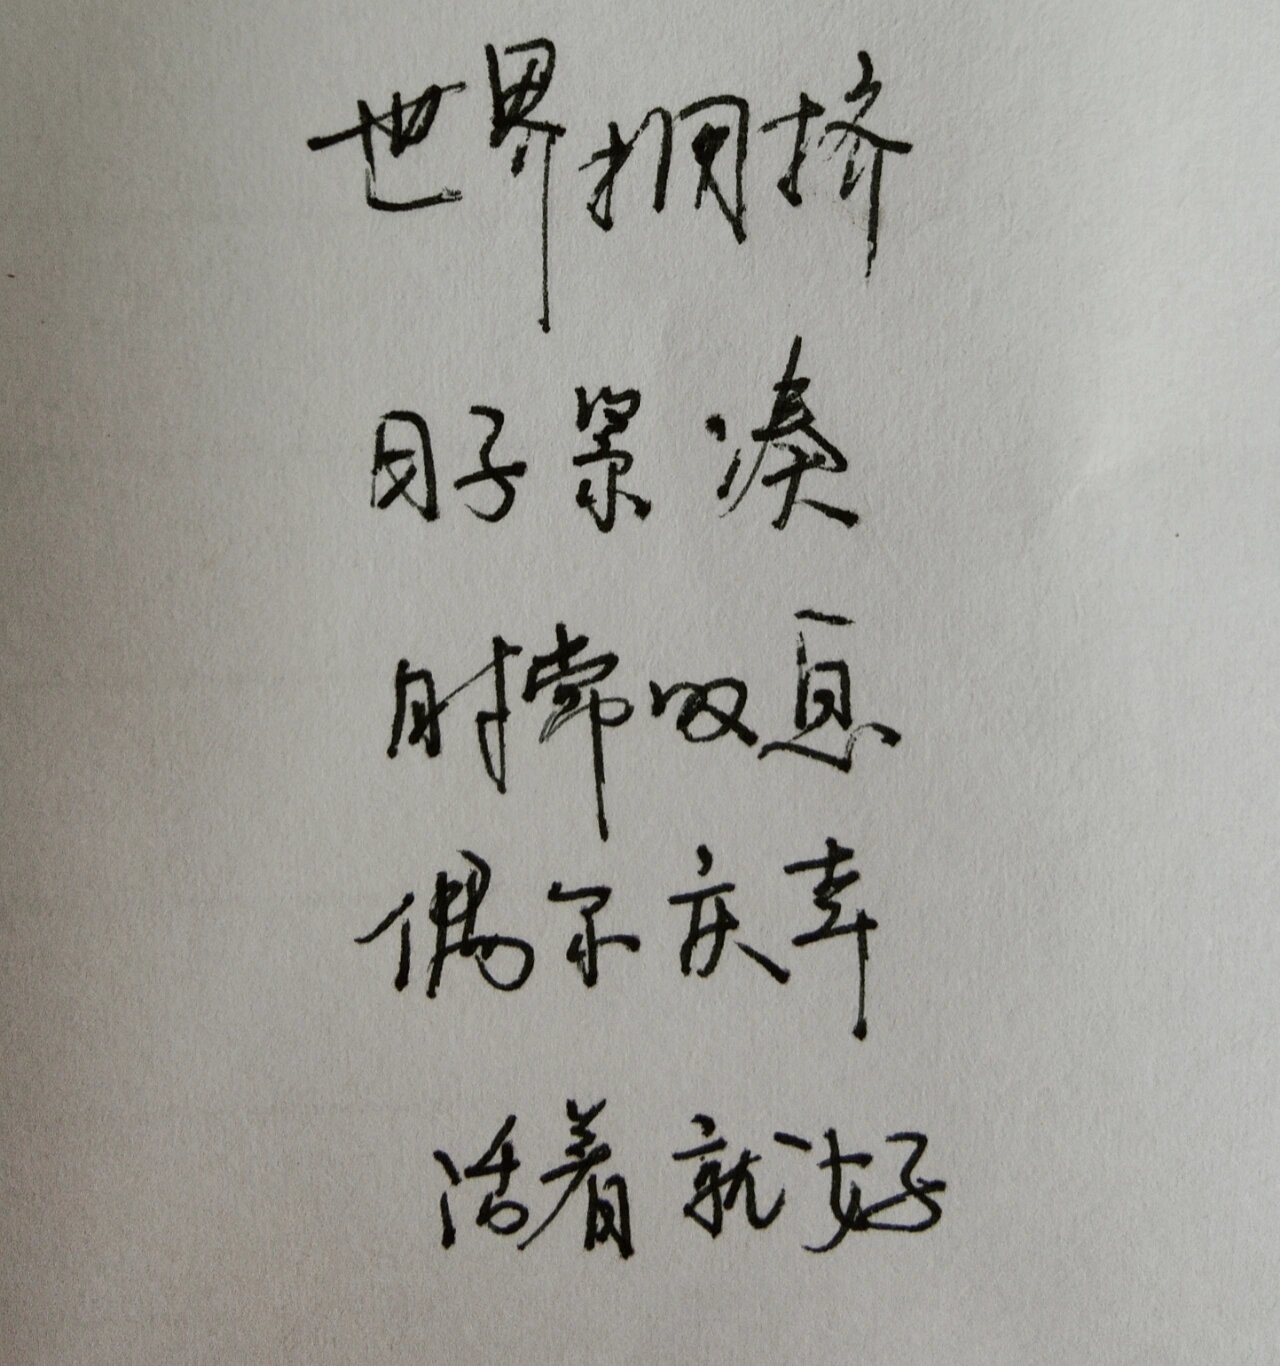 世界拥挤
日子紧凑
时常叹息
偶尔庆幸
活着就好